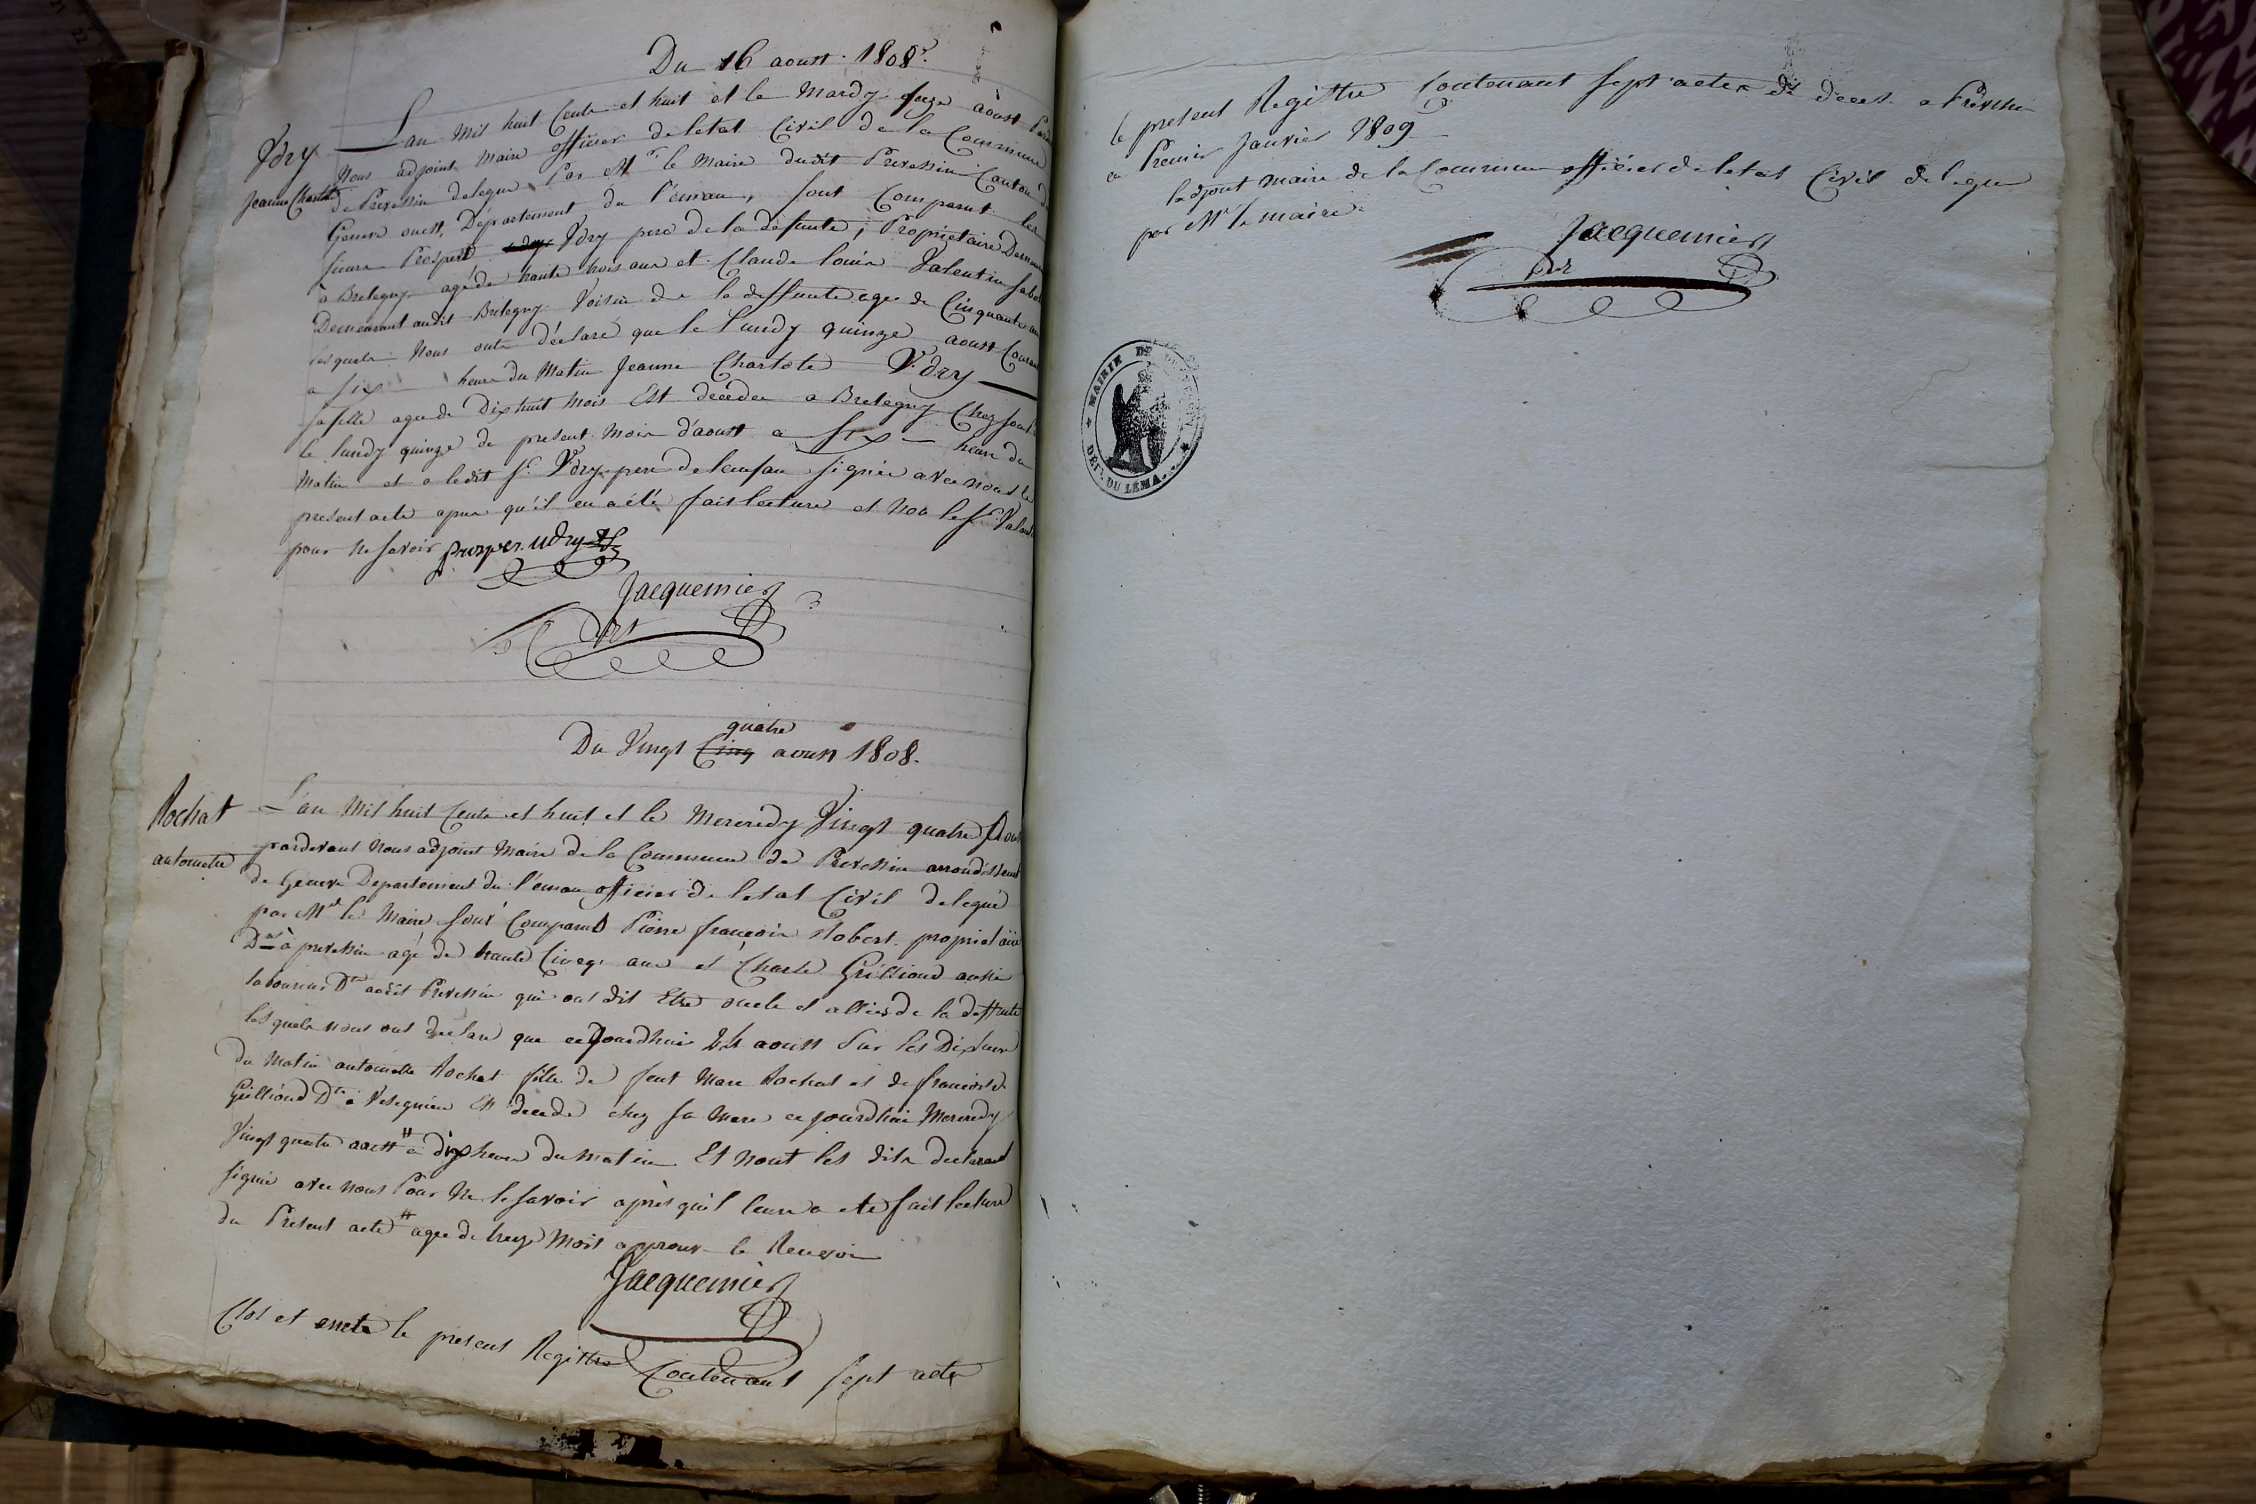 Du 16 aoust 1808.
Ydry
Jeanne Charlote
L'an mil huit Cents et huit et le Mardy seize aoust Parde
Nous adjoint Maire officier de letat Civil de la Commune
de Prevessin delegué Par Mr le Maire dudit Prevessin Canton de
Geneve ouest, Département du Leman, sont Comparut les
sieurs Prosper Ydry pere de la défunte, Propriétaire Demeur
à Bretegny agé de trante trois ans et Claude louis Valentin labou
Demeurant audit Bretegny Voisin de la deffunte agé de Cinquante ans
lesquels Nous onts déclaré que le Lundy quinze aoust Couran
a six heure du Matin Jeanne Charlote Ydry
sa fille agée de Dixhuit Mois Est decedee a Bretegny Chez son
le lundy quinze de present Mois d'aoust a six heure du
Matin et a ledit Sr Ydry pere de lenfan signée avec nous le
present acte apres qu'il en a été fait lecture et Non le Sr Valent
pour ne savoir prosper udry
Jacquemier
adjt
Du Vingt Cinq quatre aoust 1808.
Rochat
antoinette
L'an Mil huit Cents et huit et le Mercredy Vingt quatre Aou
pardevant Nous adjoint Maire de la Commune de Prevessin arrondissem
de Geneve Departement du Léman officier de letat Civil delegué
par Mr le Maire sont Comparus Pierre françois Robert propriétaire
Dt à prevessin agé de trante Cinq ans et Charle Grilliond aussi
laboureur Dt audit Prevessin qui ont dit Etre oncle et alliés de la deffunte
lesquels nous ont declaré que cejourdhui 24 aoust sur les Dix heure
du Matin antoinette Rochat fille de feut Marc Rochat et de francoise
Grilliond Dt a Vesegnin Est decede chez sa Mere ce jourdhui Mercredy
Vingt quatre aoust # a dix heures du matin Et nont les dits declarant
signée avec nous Pour Ne le savoir après quil leure a ete fait lecture
du Present acte # agee de treize Mois approuv le Renvoi
Jacquemier
Clos et arreté le present Registre Contenant sept actes
le present Registre Contenant sept actes de deces a Prevessin
ce Premier Janvier 1809
ladjoint maire de la Commune officier de letat Civil delegué
par Mr le maire
Jacquemier
adjt
MAIRIE DE
DÉPt. DU LÉMAN